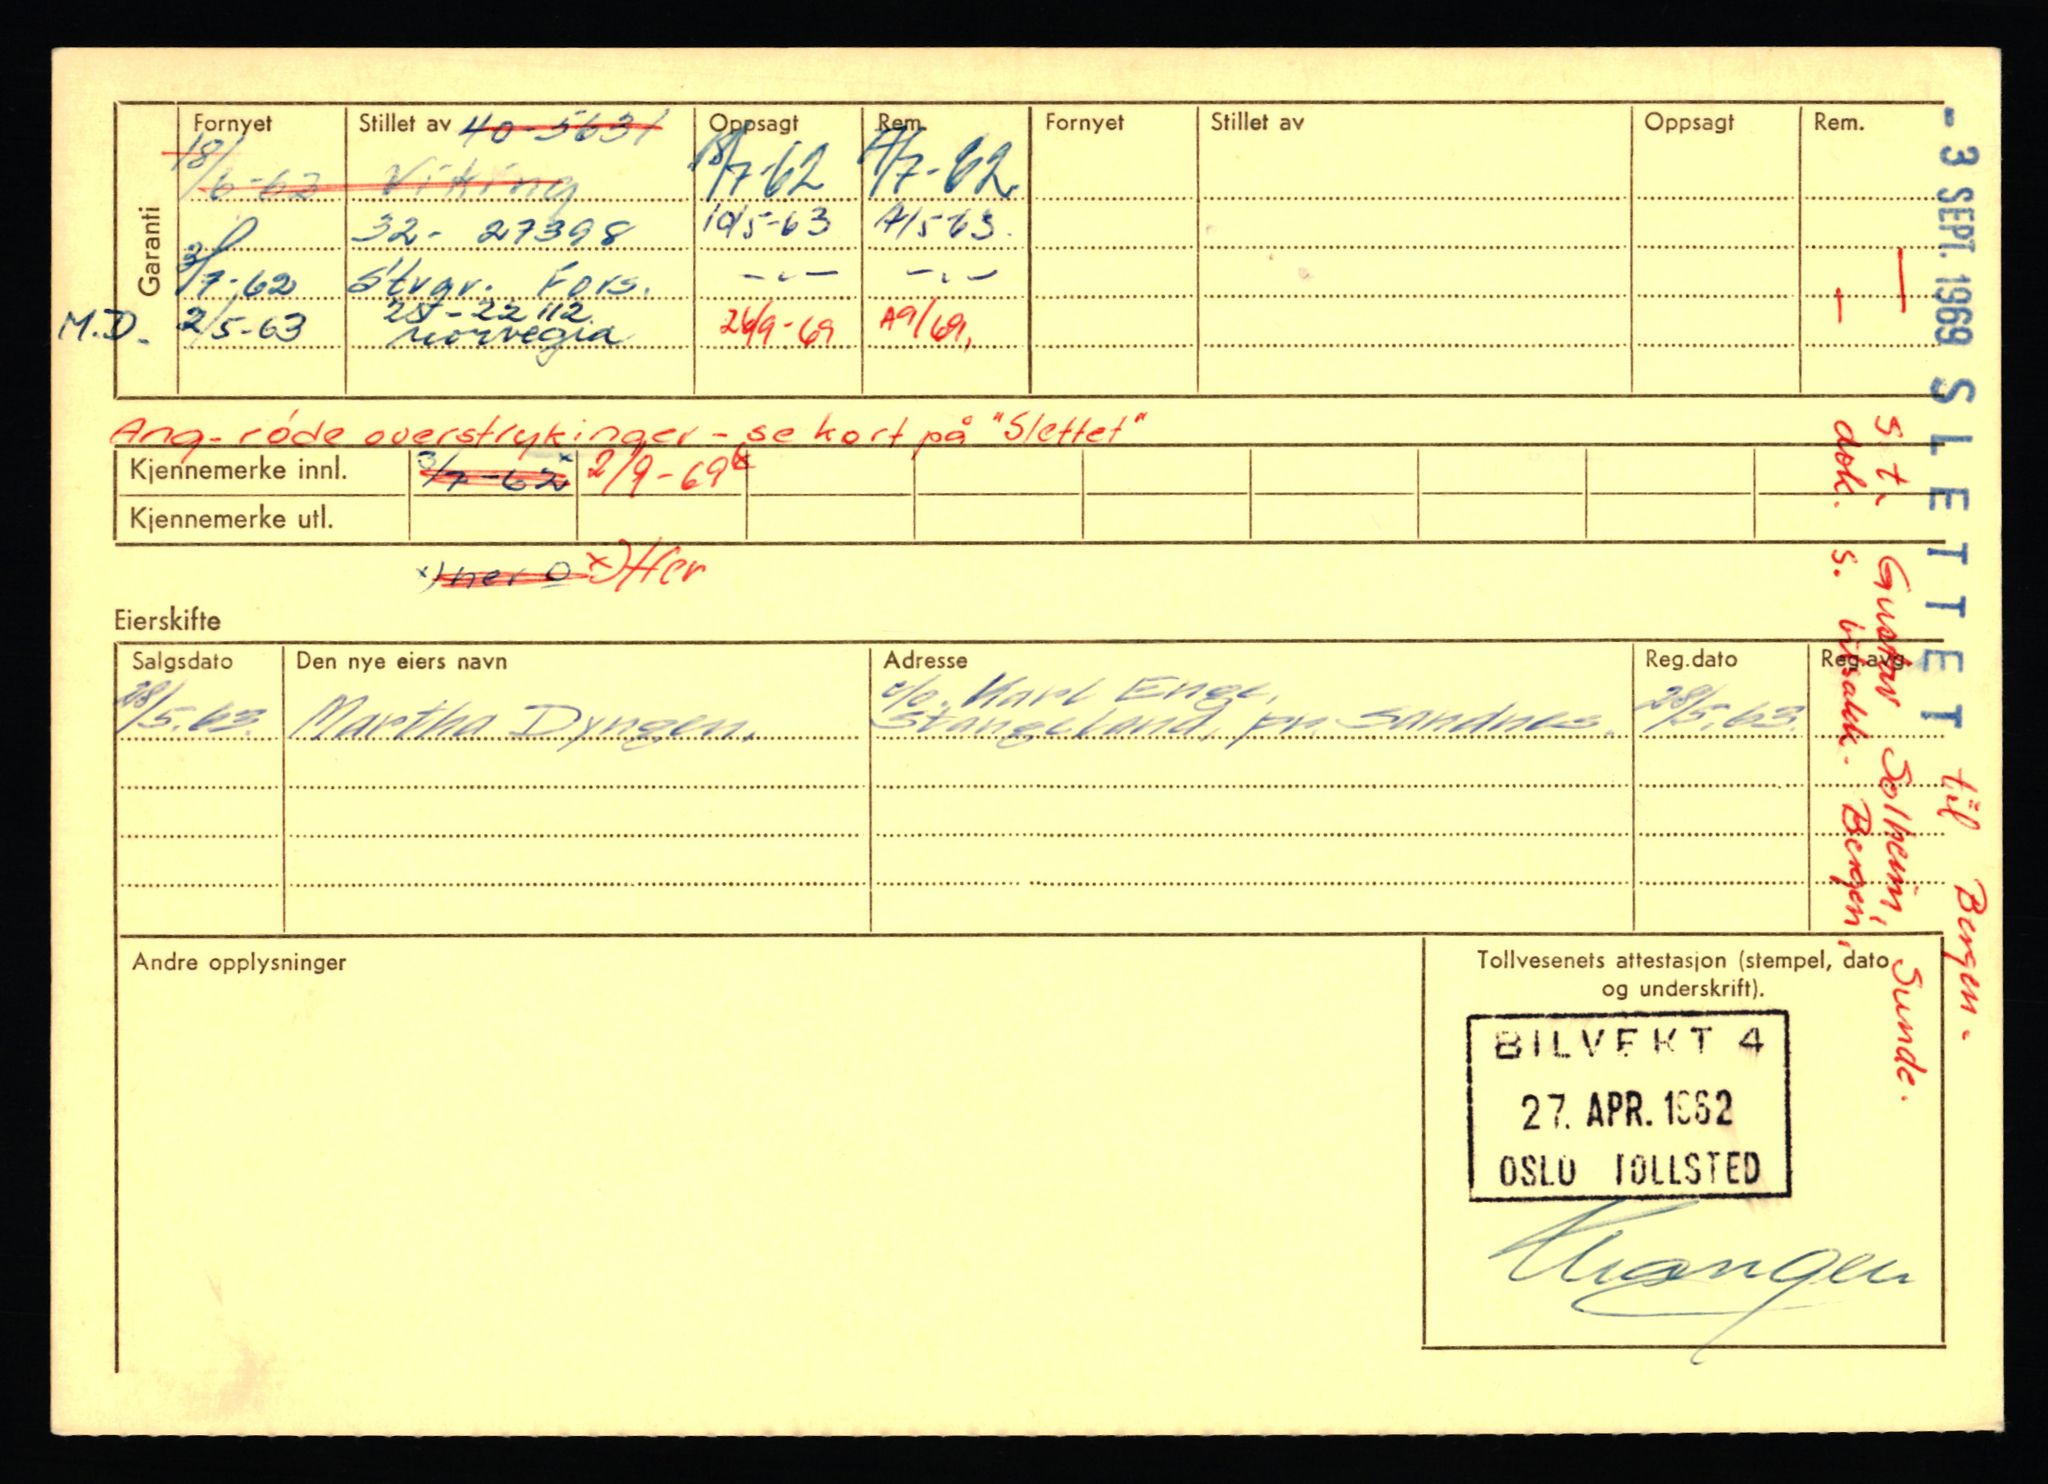 Garanti
Fornyet Stillet av 40-5631 Oppsagt Rem. Fornyet Stillet av Oppsagt Rem.
18/6-63 Viking 18/7-62 A/7-62.
32- 27398 10/5-63 A/5-63.
3/7-62 Strgr. Fors. - " - - " -
M.D. 2/5-63 25-22112 Norvegia 26/9-69 A9/69.
Ang. røde overstrykinger - se kort på "Slettet"
Kjennemerke innl. 3/7-62x 2/9-69x
Kjennemerke utl.
x) her x) Her
Eierskifte
Salgsdato Den nye eiers navn Adresse Reg.dato Reg.avg.
28/5.63. Martha Dyngen, c/o. Karl Enge, Stangeland, pr. Sandnes. 28/5.63.
Andre opplysninger
Tollvesenets attestasjon (stempel, dato
og underskrift).
BILVEKT 4
27. APR. 1962
OSLO TOLLSTED
- 3 SEPT. 1969 SLETTET til Bergen.
St. Gustav Solheim, Sunde.
dok. s. bilsakk. Bergen,